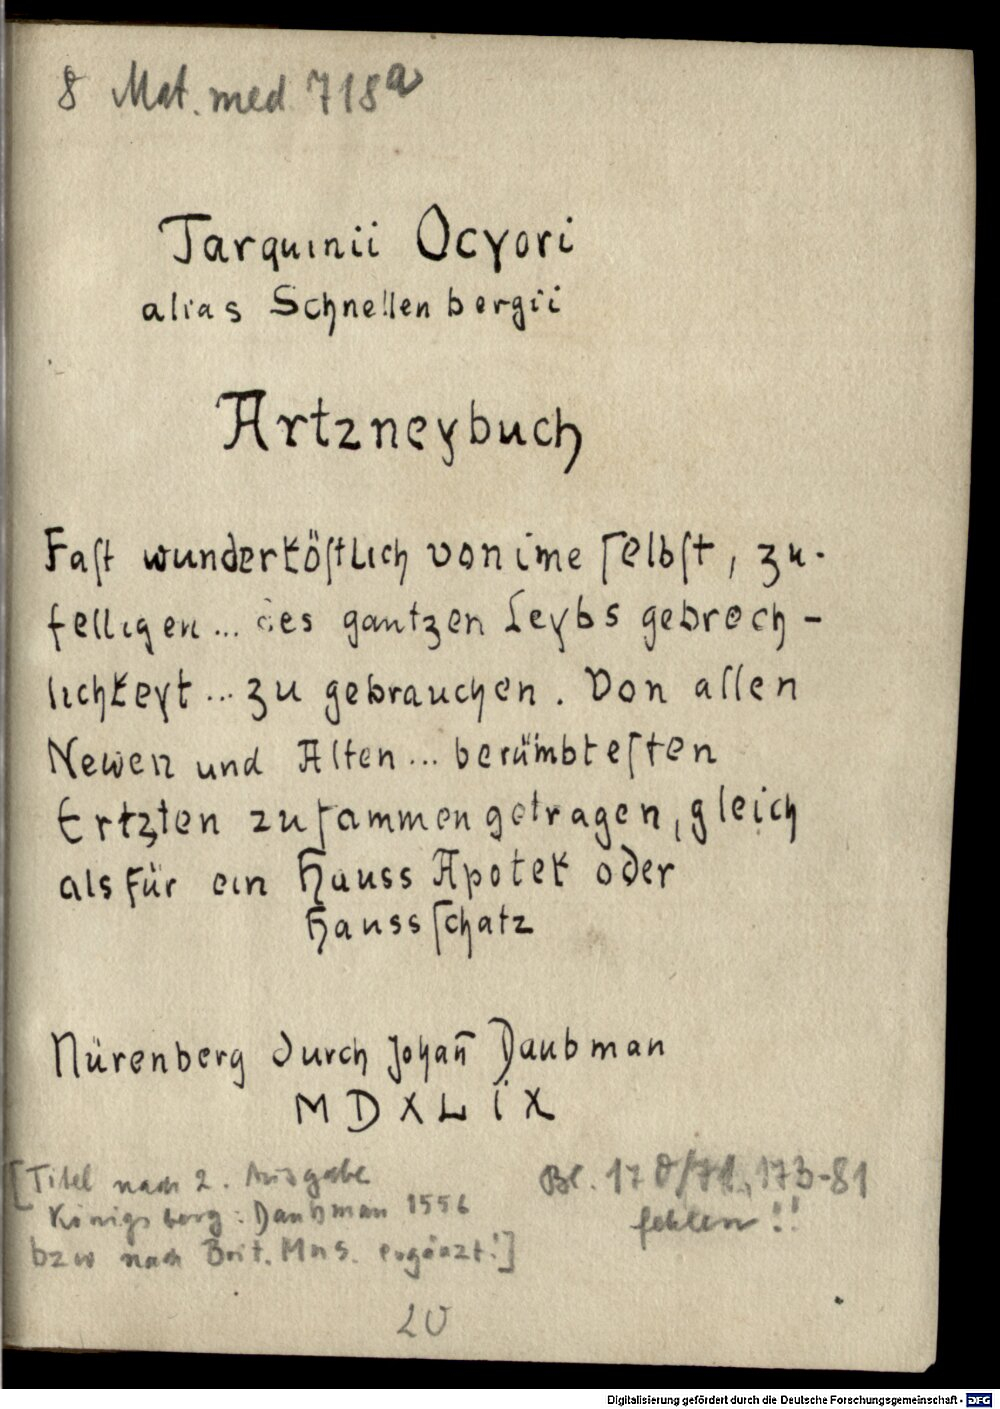 8 Mat. med 718a
Tarquinii Ocyori
alias Schnellenbergii
Artzneybuch
Faſt wunderköſtlich von ime ſelbſt, zu-
felligen... des gantzen Leybs gebrech-
lichkeyt... zu gebrauchen. Von allen
Newen und Alten... berümbteſten
Ertzten zuſammen getragen, gleich
als für ein Hauss Apotek oder
Haussſchatz
Nürenberg durch Johan̄ Daubman
MDXLIX
[Titel nach 2. Ausgabe
Königsberg: Daubman 1556
bzw nach Brit. Mus. ergänzt!]
Bl. 170/71, 173-81
fehlen!!
20
Digitalisierung gefördert durch die Deutsche Forschungsgemeinschaft - DFG